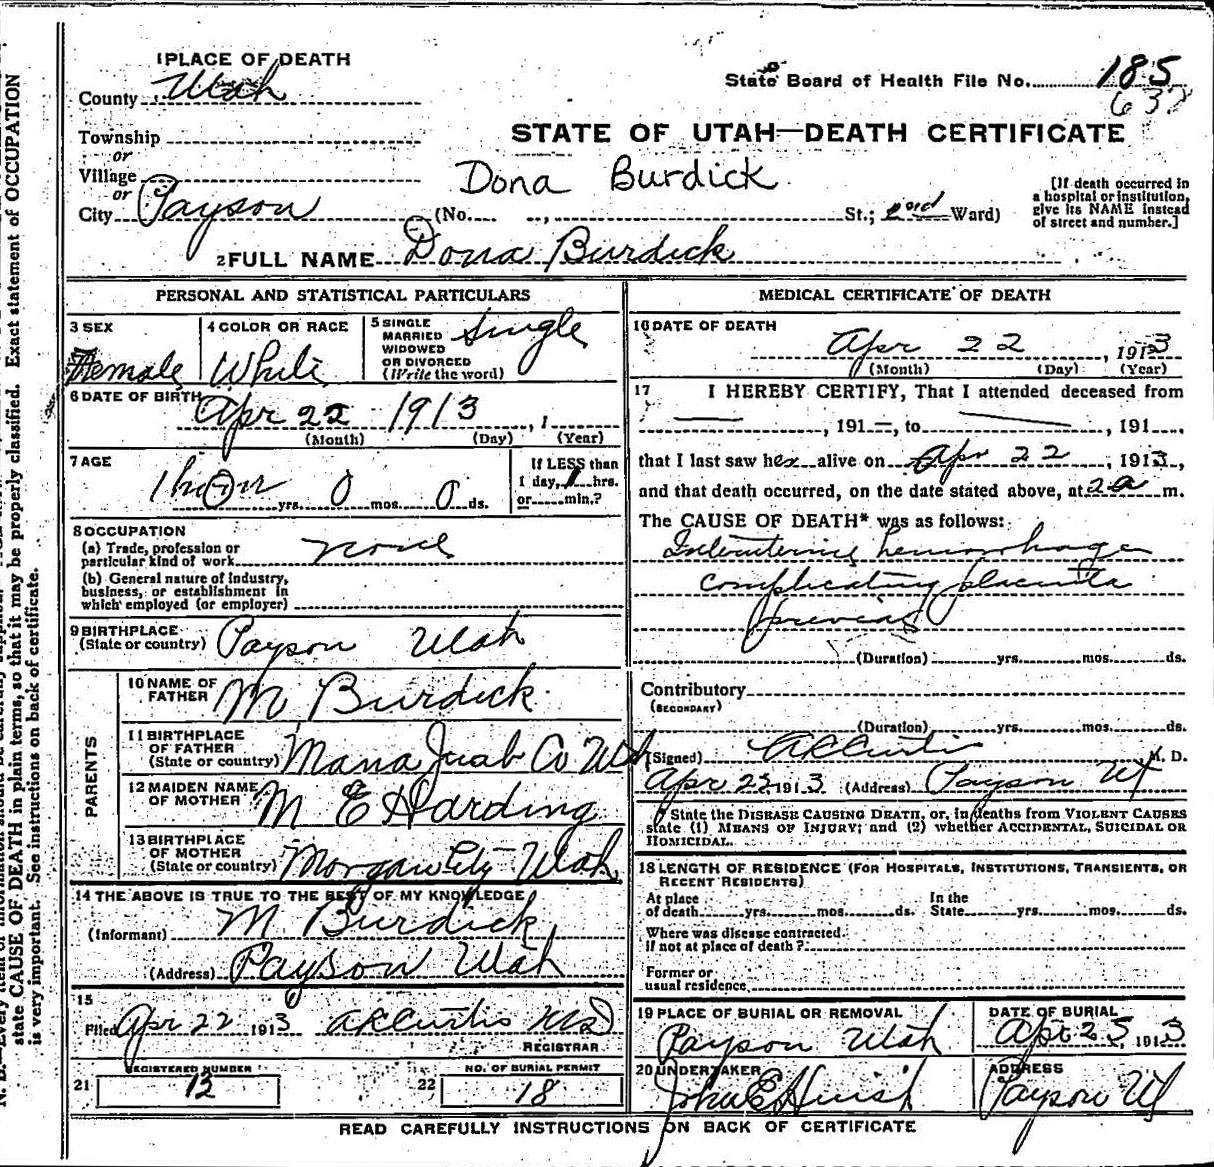 1 PLACE OF DEATH
County Utah
State Board of Health File No. 185
637
Township
or
Village
or
City Payson
STATE OF UTAH—DEATH CERTIFICATE
Dona Burdick
(No. , St.; 2nd Ward)
[If death occurred in a hospital or institution, give its NAME instead of street and number.]
2 FULL NAME Dona Burdick
PERSONAL AND STATISTICAL PARTICULARS
3 SEX
Female
4 COLOR OR RACE
White
5 SINGLE MARRIED WIDOWED OR DIVORCED (Write the word)
Single
6 DATE OF BIRTH
Apr 22 1913 , 1
(Month) (Day) (Year)
7 AGE
1 hour yrs. 0 mos. 0 ds.
If LESS than 1 day, 1 hrs. or min.?
8 OCCUPATION
(a) Trade, profession or particular kind of work none
(b) General nature of industry, business, or establishment in which employed (or employer)
9 BIRTHPLACE
(State or country) Payson Utah
PARENTS
10 NAME OF FATHER M Burdick
11 BIRTHPLACE OF FATHER (State or country) Mona Juab Co Utah
12 MAIDEN NAME OF MOTHER M E Harding
13 BIRTHPLACE OF MOTHER (State or country) Morgan City Utah
14 THE ABOVE IS TRUE TO THE BEST OF MY KNOWLEDGE
(Informant) M Burdick
(Address) Payson Utah
15
Filed Apr 22 1913 A L Curtis MD
REGISTRAR
REGISTERED NUMBER
21 12
NO. OF BURIAL PERMIT
22 18
MEDICAL CERTIFICATE OF DEATH
16 DATE OF DEATH
Apr 22 , 1913
(Month) (Day) (Year)
17 I HEREBY CERTIFY, That I attended deceased from
— , 191 — , to — , 191 ,
that I last saw her alive on Apr 22 , 1913 ,
and that death occurred, on the date stated above, at 2 a m.
The CAUSE OF DEATH* was as follows:
Intrauterine hemorrhage
complicating placenta
previa
(Duration) yrs. mos. ds.
Contributory
(SECONDARY)
(Duration) yrs. mos. ds.
(Signed) A L Curtis M. D.
Apr 22 1913 (Address) Payson Ut
* State the DISEASE CAUSING DEATH, or, in deaths from VIOLENT CAUSES
state (1) MEANS OF INJURY; and (2) whether ACCIDENTAL, SUICIDAL OR
HOMICIDAL.
18 LENGTH OF RESIDENCE (FOR HOSPITALS, INSTITUTIONS, TRANSIENTS, OR
RECENT RESIDENTS)
At place of death yrs. mos. ds. In the State yrs. mos. ds.
Where was disease contracted.
if not at place of death?
Former or
usual residence
19 PLACE OF BURIAL OR REMOVAL
Payson Utah
DATE OF BURIAL
Apr 23, 1913
20 UNDERTAKER
John E Huish
ADDRESS
Payson Ut
READ CAREFULLY INSTRUCTIONS ON BACK OF CERTIFICATE
state CAUSE OF DEATH in plain terms, so that it may be properly classified. Exact statement of OCCUPATION
is very important. See instructions on back of certificate.